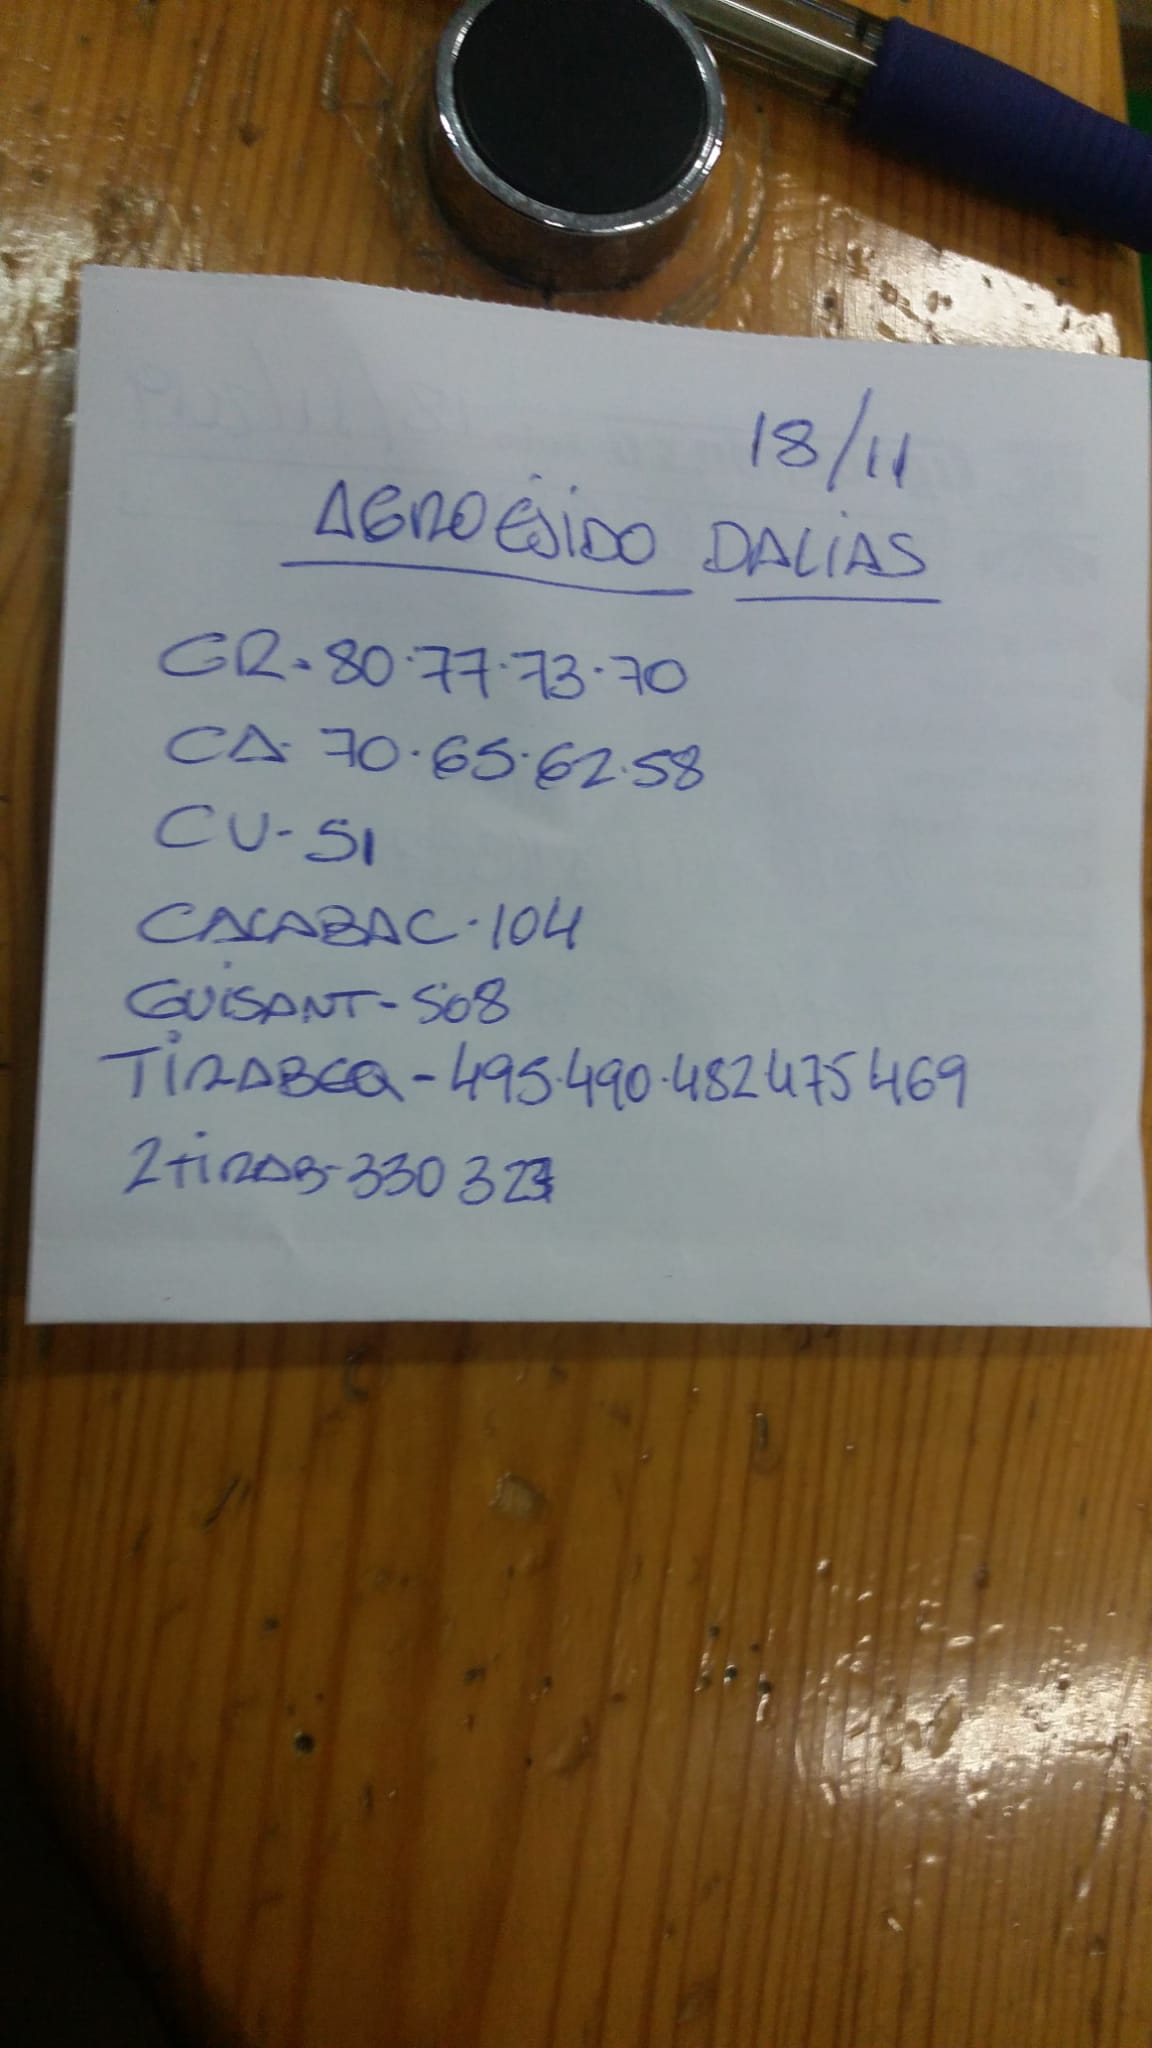 18/11
AGROEJIDO DALIAS
GR. 80.77.73.70
CA. 70.65.62.58
CU-51
CALABAC.104
GUISANT-508
TIRABEQ-495.490.482 475 469
2TIRAB-330 323